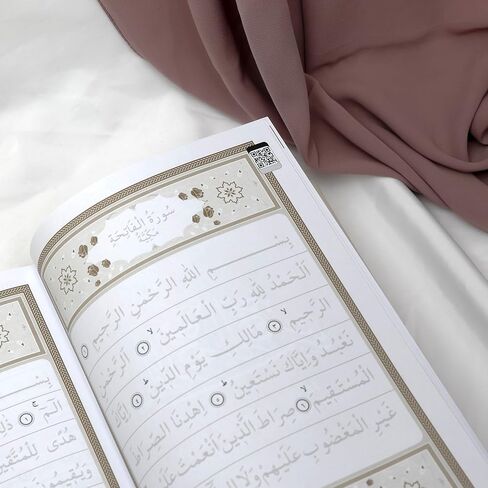 سُورَةُ الْفَاتِحَةِ
مَكِّيَّةٌ
بِسْمِ اللّٰهِ الرَّحْمٰنِ الرَّحِيمِ ١
اَلْحَمْدُ لِلّٰهِ رَبِّ الْعَالَمِينَ ٢ اَلرَّحْمٰنِ
الرَّحِيمِ ٣ مَالِكِ يَوْمِ الدِّينِ ٤ اِيَّاكَ
نَعْبُدُ وَاِيَّاكَ نَسْتَعِينُ ٥ اِهْدِنَا الصِّرَاطَ
الْمُسْتَقِيمَ ٦ صِرَاطَ الَّذِينَ اَنْعَمْتَ عَلَيْهِمْ
غَيْرِ الْمَغْضُوبِ عَلَيْهِمْ وَلَا
بِسْمِ
الٓمٓ ١ ذٰلِكَ
هُدًى لِلْمُتَّقِينَ
وَيُقِيمُونَ